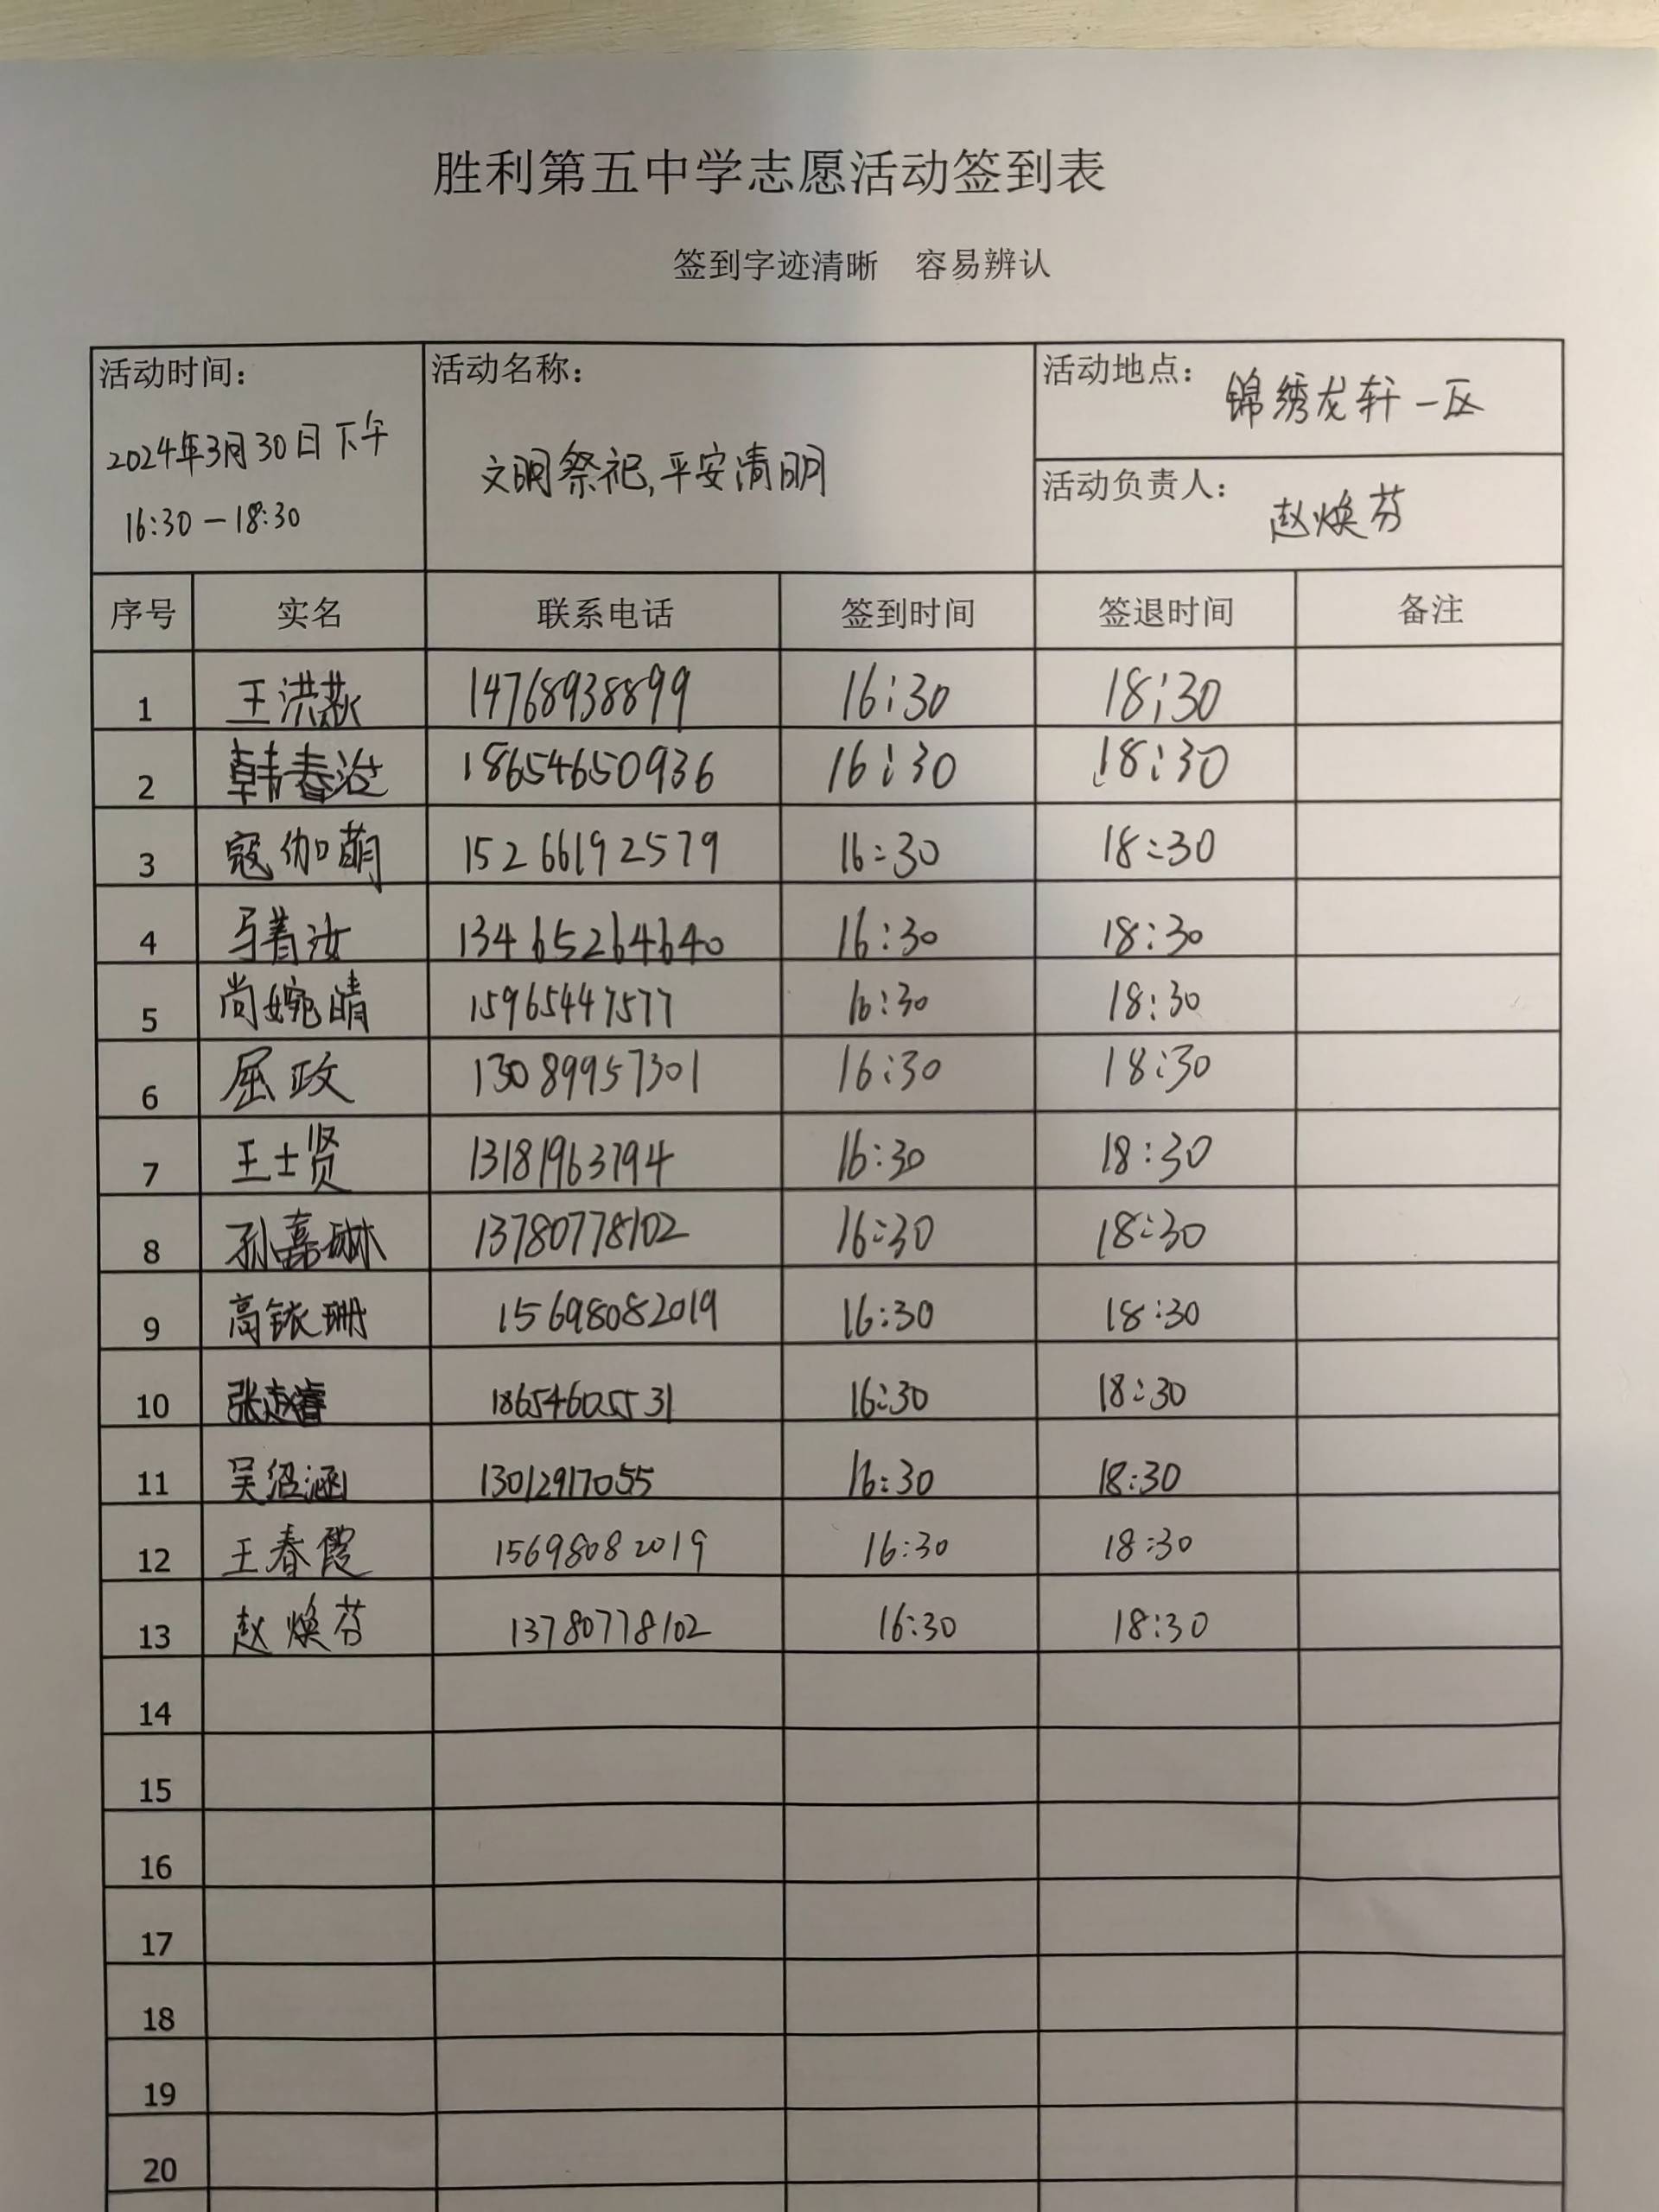 胜利第五中学志愿活动签到表
签到字迹清晰 容易辨认
活动时间: 活动名称: 活动地点: 锦绣龙轩一区
2024年3月30日下午
16:30-18:30
文明祭祀,平安清明
活动负责人: 赵焕芬
序号 实名 联系电话 签到时间 签退时间 备注
1 王洪 14768938899 16:30 18:30
2 韩春 18654650936 16:30 18:30
3 寇伽萌 15266192579 16:30 18:30
4 马菁汝 13465264640 16:30 18:30
5 尚婉晴 15965447577 16:30 18:30
6 屈政 13089957301 16:30 18:30
7 王士贤 13181963794 16:30 18:30
8 孙嘉琳 13780778102 16:30 18:30
9 高铱珊 15698082019 16:30 18:30
10 张赵睿 18654605531 16:30 18:30
11 吴沼涵 13012917055 16:30 18:30
12 王春霞 15698082019 16:30 18:30
13 赵焕芬 13780778102 16:30 18:30
14
15
16
17
18
19
20